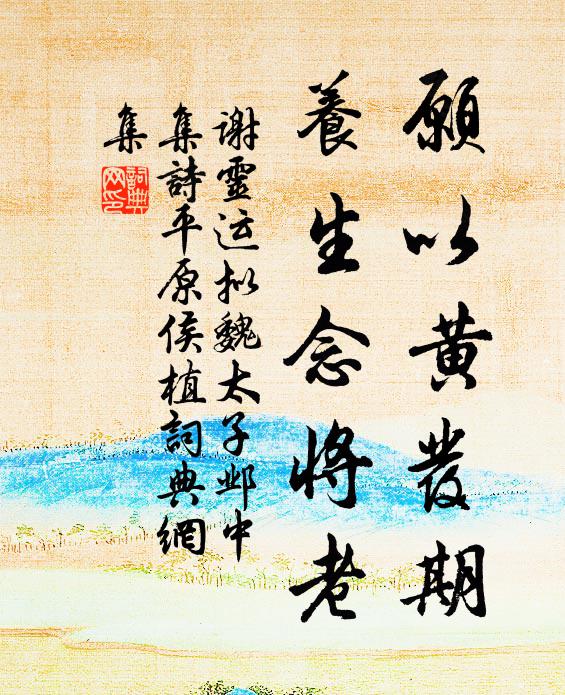 願以黄發期
養生念將老
謝靈运拟魏太子邺中
集詩平原侯植詞典網
集
詞典网印